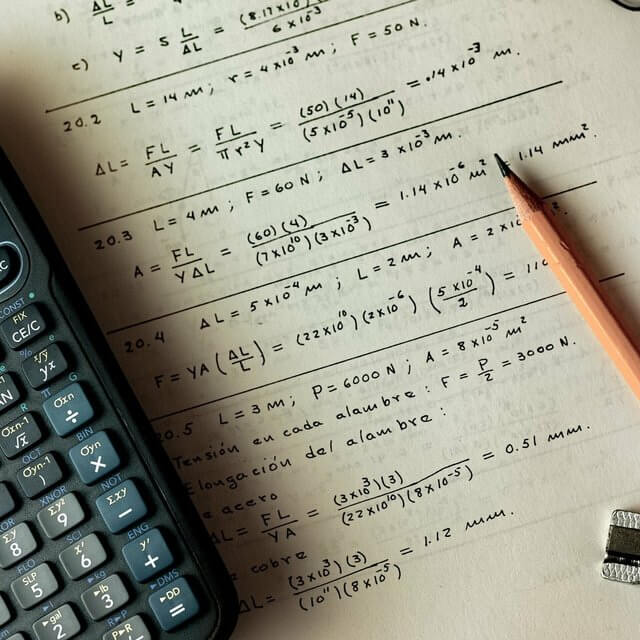 b) ΔL/L = 4 = (8.17×10)/(6×10³)
c) Y = 5 L/ΔL =
20.2 L = 14 m ; r = 4×10⁻³ m ; F = 50 N.
ΔL = FL/AY = FL/πr²Y = (50)(14)/(5×10⁻⁵)(10¹¹) = .14×10⁻³ m.
20.3 L = 4 m ; F = 60 N ; ΔL = 3×10⁻³ m.
A = FL/YΔL = (60)(4)/(7×10¹⁰)(3×10⁻³) = 1.14×10⁻⁶ m² = 1.14 mm².
20.4 ΔL = 5×10⁻⁴ m ; L = 2 m ; A = 2×10
F = YA (ΔL/L) = (22×10¹⁰)(2×10⁻⁶) (5×10⁻⁴/2) = 110
20.5 L = 3 m ; P = 6000 N ; A = 8×10⁻⁵ m²
Tensión en cada alambre : F = P/2 = 3000 N.
Elongación del alambre :
e acero
ΔL = FL/YA = (3×10³)(3)/(22×10¹⁰)(8×10⁻⁵) = 0.51 mm.
cobre
ΔL = (3×10³)(3)/(10¹¹)(8×10⁻⁵) = 1.12 mm.
CONST
FIX
CE/C
yx
Oxn
÷
Oxn-1
√x
Oyn-1
)
BIN
Oyn
×
OCT
XNOR
Σy²
9
NOT
Σxy
−
Σy
8
XOR
x'
6
ENG
y'
+
SLP
5
▸tg
▸lb
3
▸DMS
▸DD
=
▸gal
2
P▸R